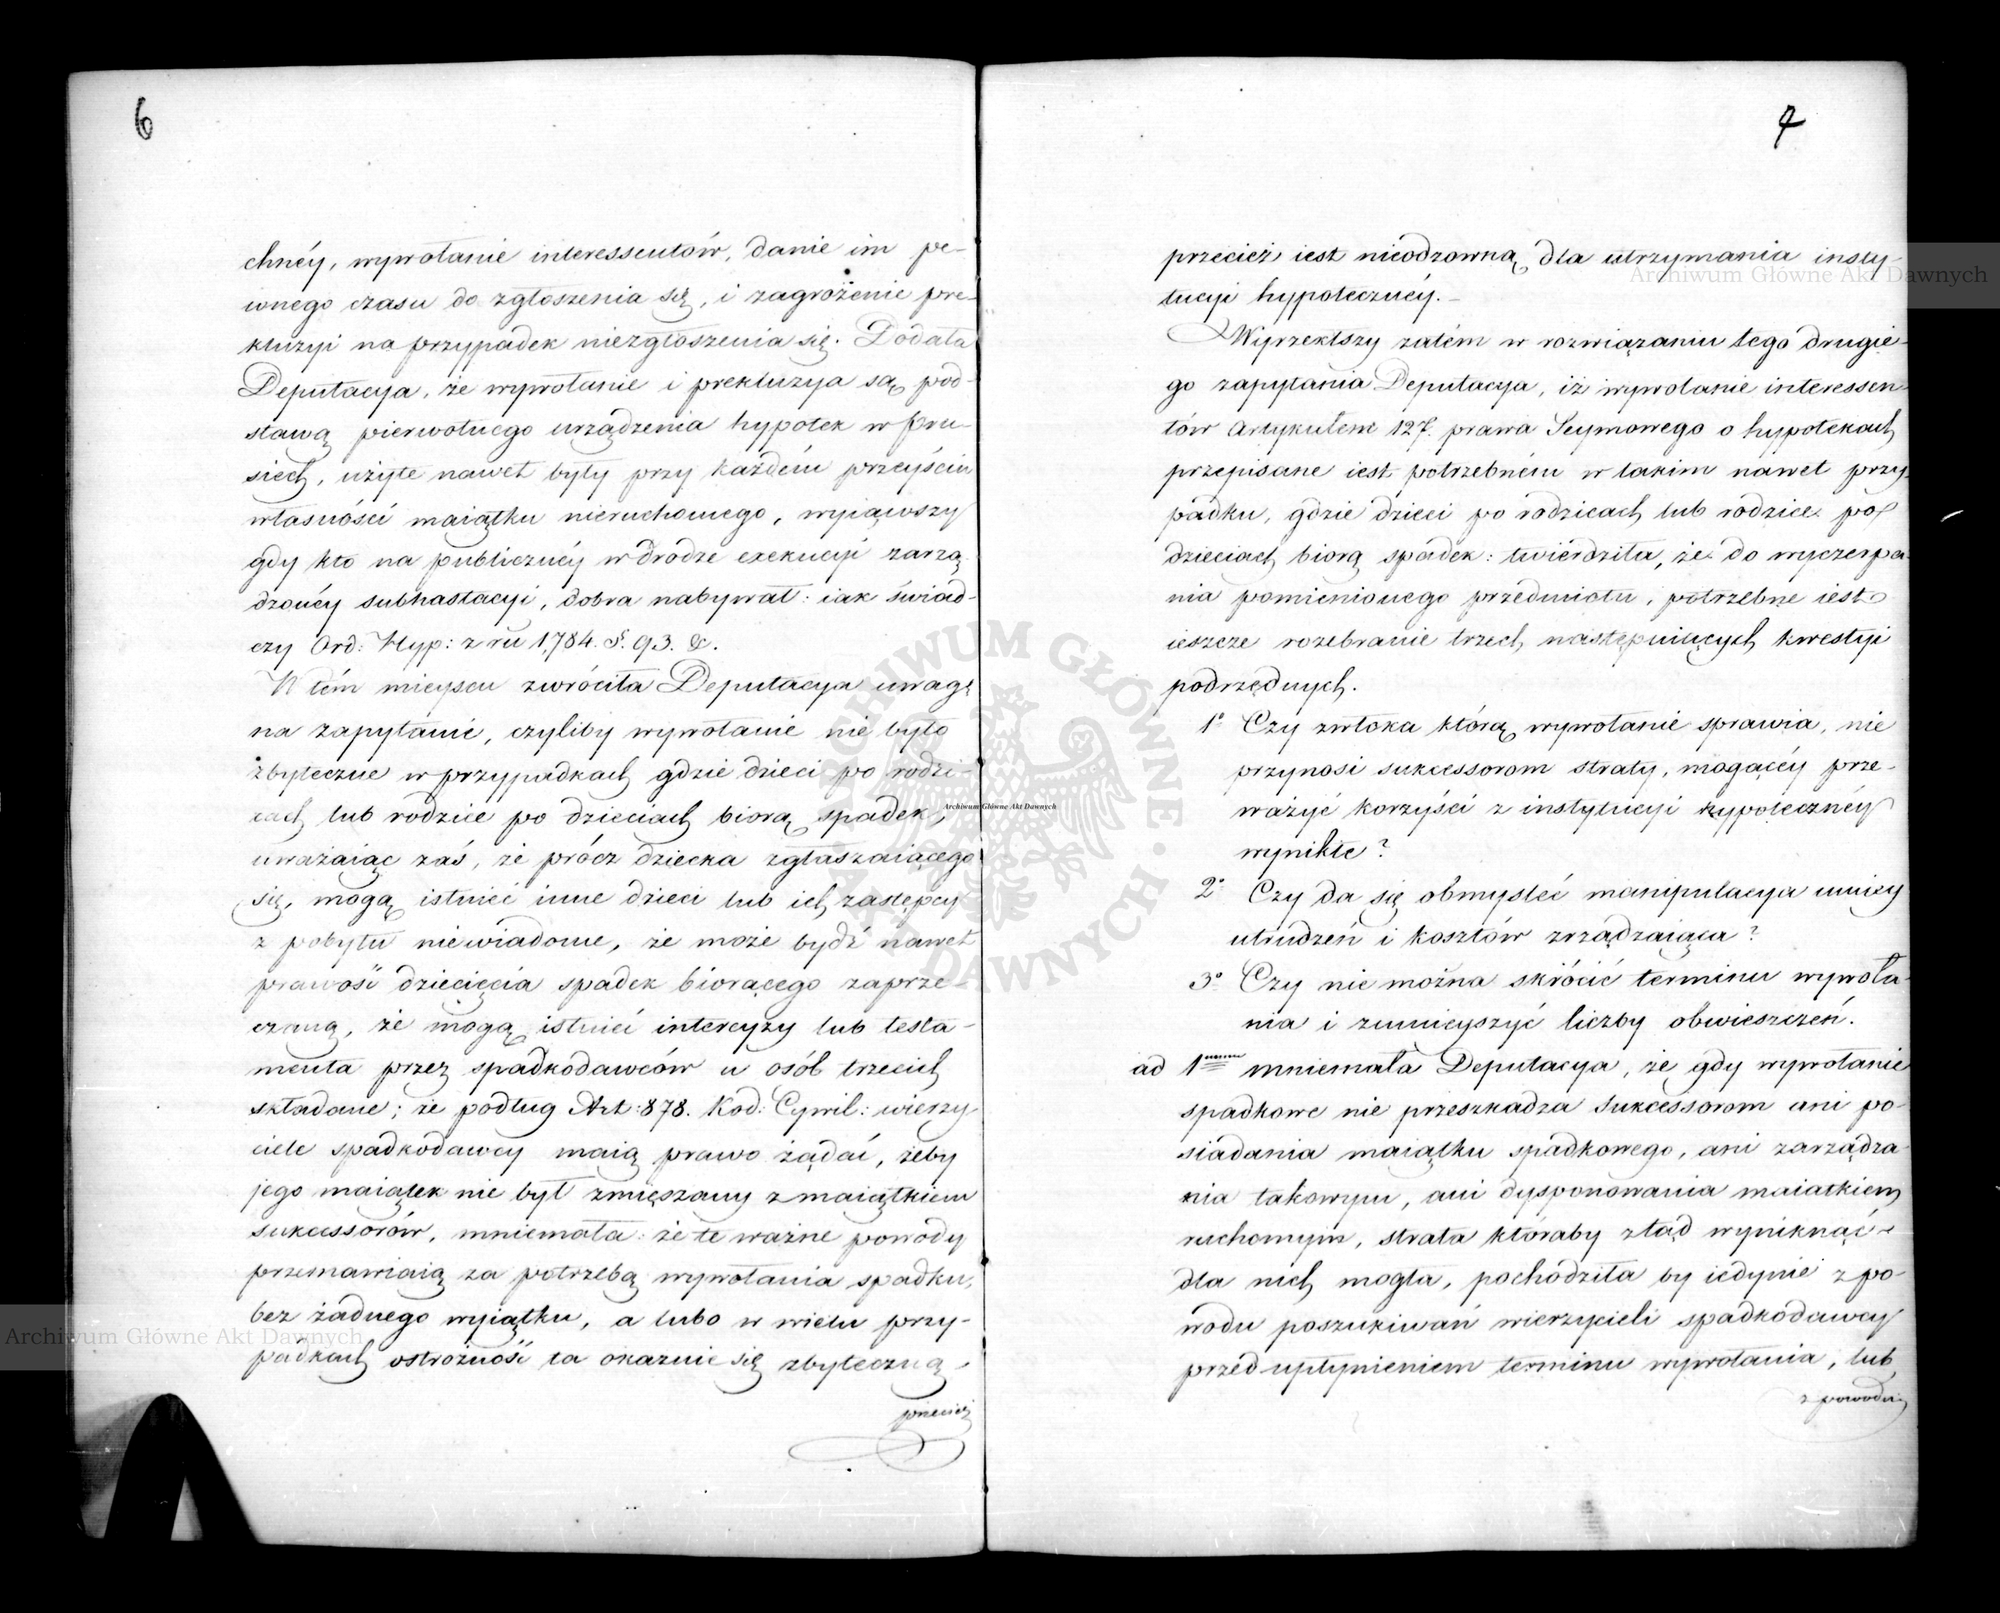 6
chnéy, wywołanie interessentów, danie im pe-
wnego czasu do zgłoszenia się, i zagrożenie pre-
kluzyi na przypadek niezgłoszenia się. Dodała
Deputacya, że wywołanie i prekluzya są pod-
stawą pierwotnego urządzenia hypotek w Pru-
siech, użyte nawet były przy każdém przeyściu
własności maiątku nieruchomego, wyiąwszy
gdy kto na publicznéy w drodze exekucyi zarzą-
dzonéy subhastacyi, dobra nabywał: iak świad-
czy Ord: Hyp: z ru 1784. §. 93. &.
W tém mieyscu zwróciła Deputacya uwagę
na zapytanie, czyliby wywołanie nie było
zbyteczne w przypadkach gdzie dzieci po rodzi-
cach lub rodzice po dzieciach biorą spadek,
uważaiąc zaś, że prócz dziecka zgłaszaiącego
się, mogą istnieć inne dzieci lub ich zastępcy
z pobytu niewiadome, że może bydź nawet
prawość dziecięcia spadek biorącego zaprze-
czaną, że mogą istnieć intercyzy lub testa-
menta przez spadkodawców u osób trzecich
składane; że podług Art: 878. Kod: Cywil: wierzy-
ciele spadkodawcy maią prawo żądać, żeby
jego maiątek nie był zmięszany z maiątkiem
sukcessorów, mniemała: że te ważne powody
przemawiaią za potrzebą wywołania spadku,
bez żadnego wyiątku, a lubo w wielu przy-
padkach ostrożność ta okazuie się zbyteczną,
przecież
7
przecież iest nieodzowną dla utrzymania insty-
tucyi hypotecznéy.
Wyrzekłszy zatém w rozwiązaniu tego drugie-
go zapytania Deputacya, iż wywołanie interessen-
tów Artykułem 127. prawa Seymowego o hypotekach
przepisane iest potrzebném w takim nawet przy-
padku, gdzie dzieci po rodzicach lub rodzice po
dzieciach biorą spadek: twierdziła, że do wyczerpa-
nia pomienionego przedmiotu, potrzebne iest
ieszcze rozebranie trzech następuiących kwestyi
podrzędnych.
1º Czy zwłoka którą wywołanie sprawia, nie
przynosi sukcessorom straty, mogącéy prze-
ważyć korzyści z instytucyi hypotecznéy
wynikłe?
2º Czy da się obmysleć manipulacya mniey
utrudzeń i kosztów zrządzaiąca?
3º Czy nie można skrócić terminu wywoła-
nia i zmnieyszyć liczby obwieszczeń.
ad 1mum mniemała Deputacya, że gdy wywołanie
spadkowe nie przeszkadza Sukcessorom ani po-
siadania maiątku spadkowego, ani zarządza-
nia takowym, ani dysponowania maiątkiem
ruchomym, strata któraby ztąd wyniknąć
dla nich mogła, pochodziła by iedynie z po-
wodu poszukiwań wierzycieli spadkodawcy
przed upłynieniem terminu wywołania, lub
z powodu
Archiwum Główne Akt Dawnych
Archiwum Główne Akt Dawnych
Archiwum Główne Akt Dawnych
ARCHIWUM GŁÓWNE AKT DAWNYCH